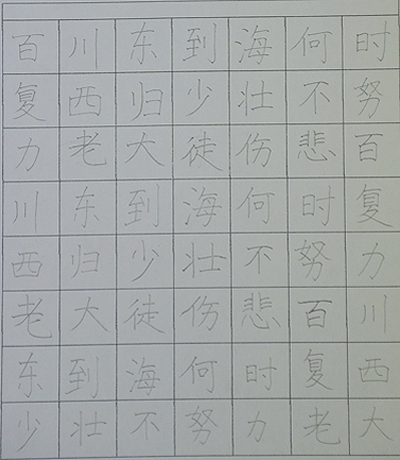 百川东到海何时
复西归少壮不努
力老大徒伤悲百
川东到海何时复
西归少壮不努力
老大徒伤悲百川
东到海何时复西
少壮不努力老大